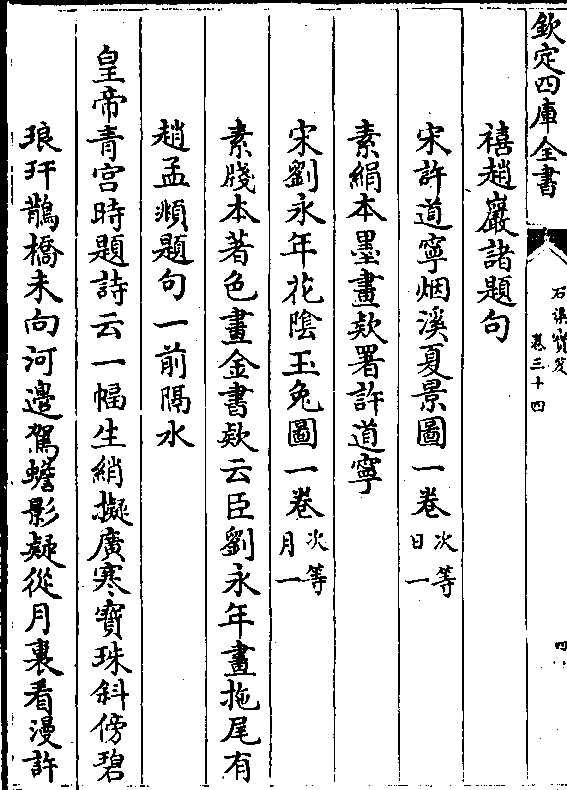 欽定四庫全書
石渠寶笈
卷三十四
四
禧趙巖諸題句
宋許道寧烟溪夏景圖一卷次等日一
素絹本墨畫欵署許道寧
宋劉永年花陰玉兔圖一卷次等月一
素牋本著色畫金書欵云臣劉永年畫拖尾有
趙孟頫題句一前隔水
皇帝青宮時題詩云一幅生綃擬廣寒寶珠斜傍碧
琅玕鵲橋未向河邊駕蟾影疑從月裏看漫許